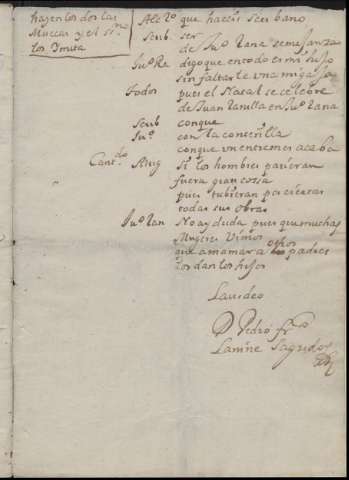 hazen los dos las
Muecas y el sn.
los Ymita
Alcde que haceis Scribano
Scrib ser
de Juo Rana semejanza
Juo Ra digo que en todo es mi hijo
sin faltarle una migaja
Todos pues el Natal se celebre
de Juan Ranilla en Juo Rana
Scrib con que
Juo con la contenzilla
con que un entremes acaba
Cantdo Mug Si los hombres parieran
fuera gran cossa
pues tubieran por ciertas
todas sus obras
Juo Ran No ay duda pues que muchas
Mugeres Vimos
que a mamar a otros padres
los dan los hijos
Lausdeo
D Pedro frco
Lanine Sagredo